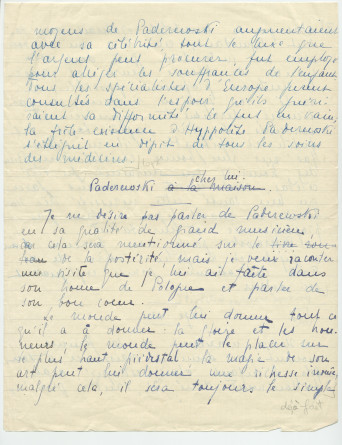 moyens de Paderewski augmentaient
avec sa célébrité, tout le bien que
l'argent peut procurer, fut employé
pour alléger les souffrances de l'enfant.
Tous les spécialistes d'Europe furent
consultés dans l'espoir qu'ils guéri-
raient sa difformité. Ce fut en vain,
la frêle existence d'Hyppolite Paderewski
s'éteignit en dépit de tous les soins
des médecins.
chez lui.
Paderewski à la maison.
Je ne désire pas parler de Paderewski
en sa qualité de grand musicien,
car cela sera mentionné sur le livre
de la postérité, mais je veux raconter
une visite que je lui ai faite dans
son home de Pologne et parler de
son bon coeur.
Le monde peut lui donner tout ce
qu'il a à donner: la gloire et les hon-
neurs, le monde peut le placer sur
le plus haut piédestal, la magie de son
art peut lui donner une richesse inouïe,
malgré cela, il sera toujours le simple,
déjà fait